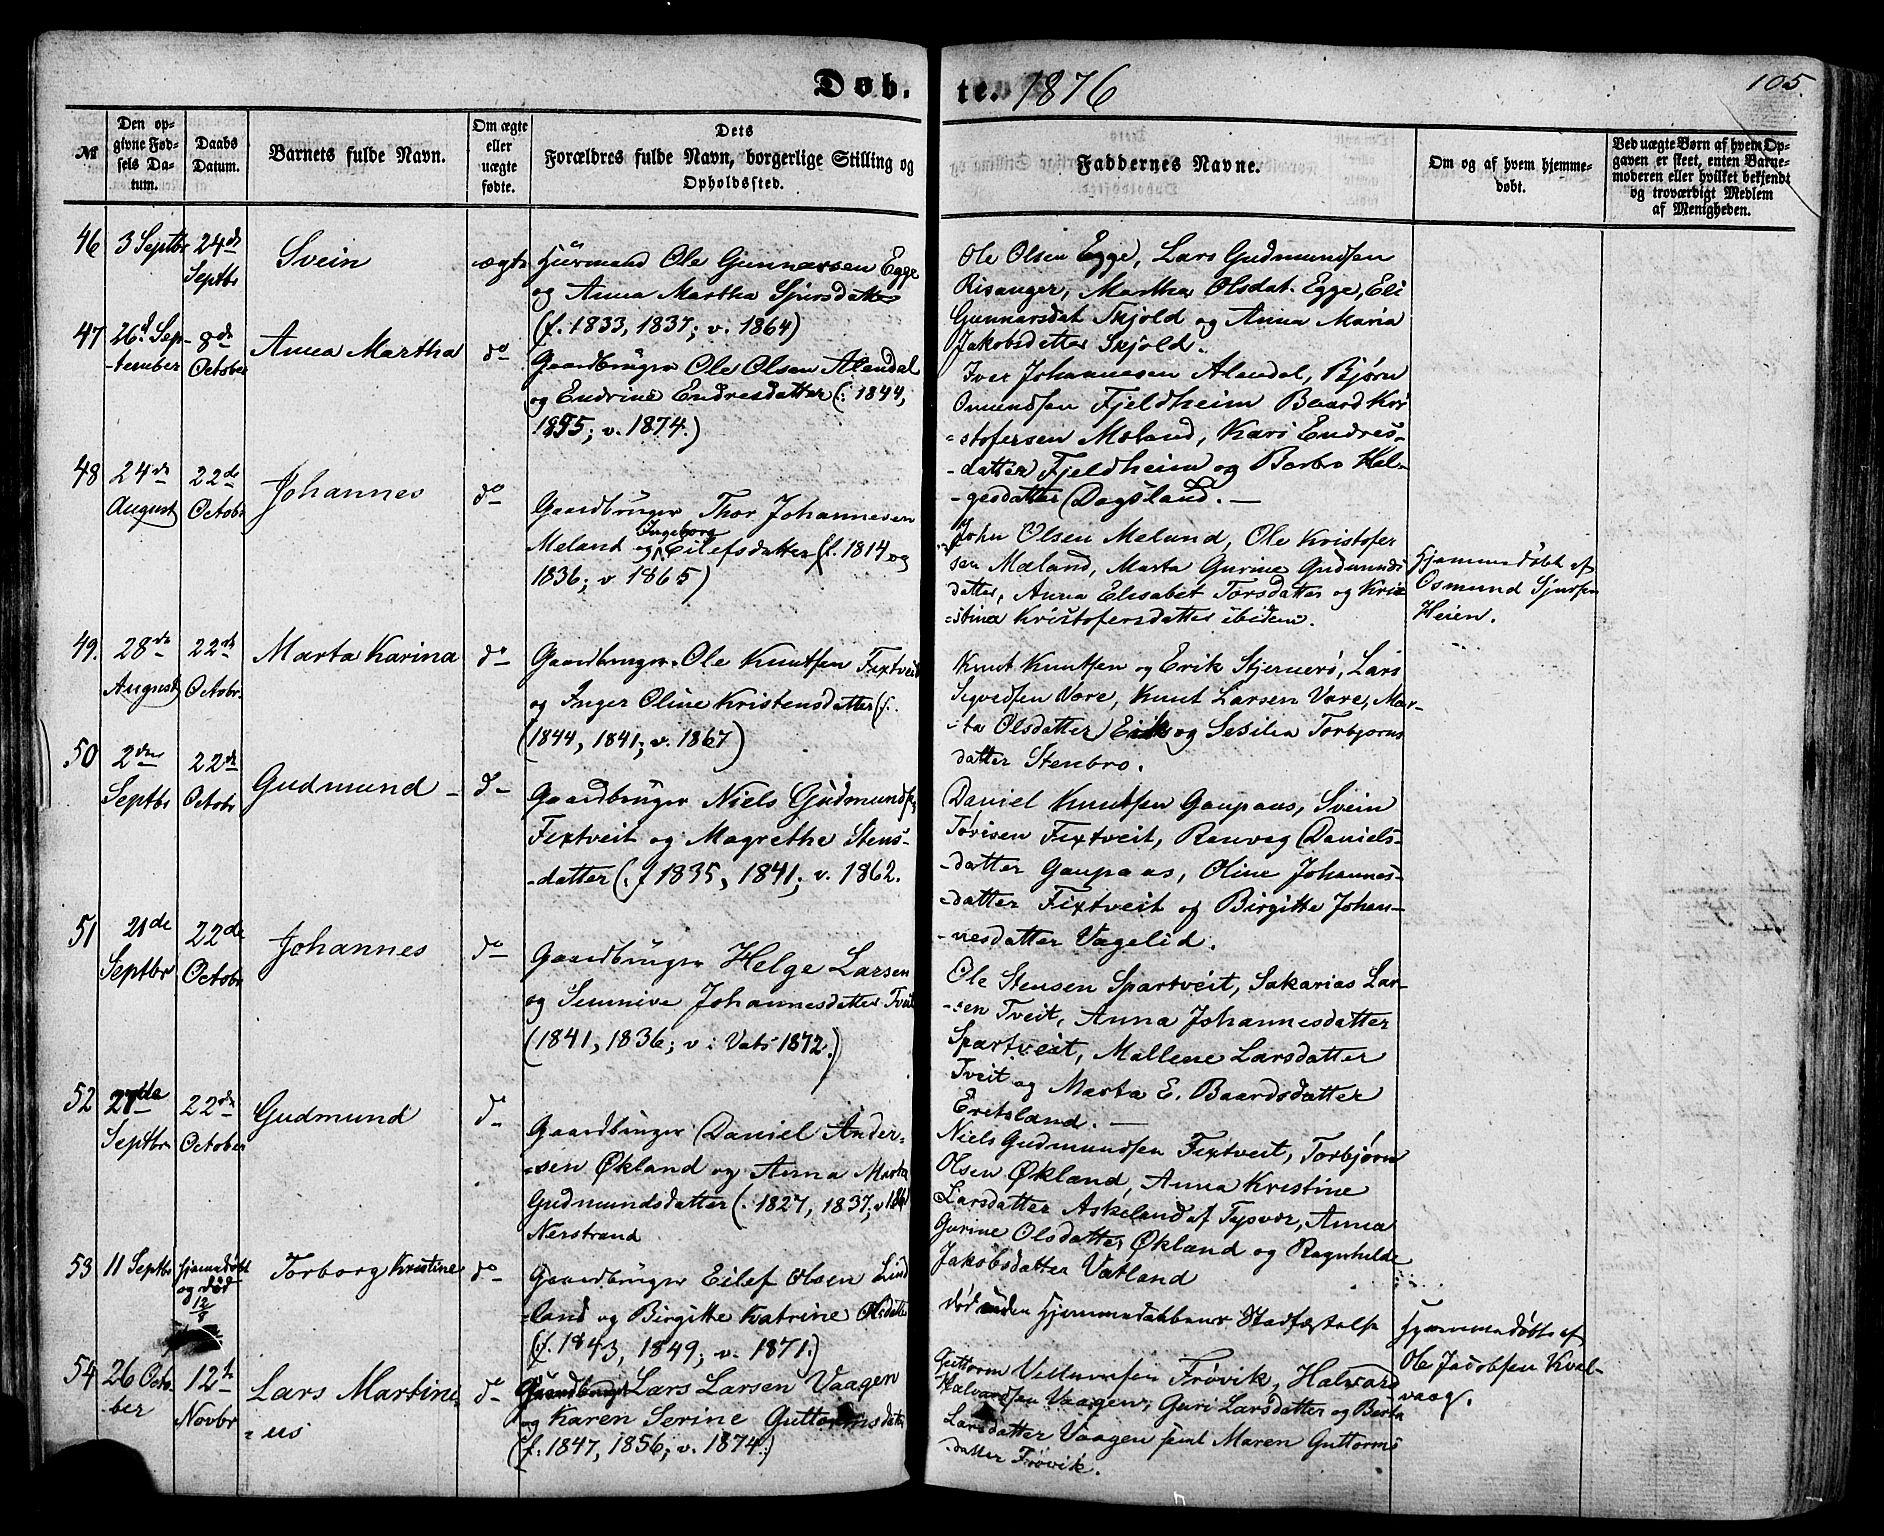 Døb.
te. 1876
105.
№
Den op-
givne Fød-
sels Da-
tum.
Daabs
Datum.
Barnets fulde Navn.
Om ægte
eller
uægte
fødte.
Dets
Forældres fulde Navn, borgerlige Stilling og
Opholdssted.
Faddernes Navne.
Om og af hvem hjemme-
døbt.
Ved uægte Børn af hvem Op-
gaven er skeet, enten Barne-
moderen eller hvilket bekjendt
og troværdigt Medlem
af Menigheden.
46
3 Septbr
24de
Septbr
Svein
ægte
Huusmand Ole Gunnarsen Egge
og Anna Martha Sjursdatter
(f. 1833, 1837; v. 1864)
Ole Olsen Egge, Lars Gudmundsen
Risanger, Martha Olsdat. Egge, Eli
Gunnarsdat Skjold og Anna Maria
Jakobsdatter Skjold.
47
26d. Sep-
-tember
8de
October
Anna Martha
do
Gaardbruger Ole Olsen Alendal
og Endrine Endresdatter (: 1844,
1855; v. 1874.)
Iver Johannesen Alendal, Bjørn
Omundsen Fjeldheim Baard Kri
-stofersen Mæland, Kari Endres-
-datter Fjeldheim og Barbro Hel-
-gesdatter Dagsland. —
48
24de
August
22de
Octobr
Johannes
do
Gaardbruger Thor Johannesen
Meland og Ingeborg Eilefsdatter (f. 1814 og
1836; v. 1865)
John Olsen Meland, Ole Kristofer
sen Mæland, Marta Gurine Gudmunds
datter, Anna Elisabet Torsdatter og Kri
-stina Kristofersdatter ibidem.
Hjemmedøbt af
Osmund Sjursen
Heien.
49.
28de
August
22de
Octobr.
Marta Karina
do
Gaardbruger Ole Knutsen Fixtveit
og Inger Oline Kristensdatter (f.
(1844, 1841; v. 1867)
Knut Knutsen og Erik Stjernerø, Lars
Segvedsen Vare, Knut Larsen Vare, Mar-
-ta Olsdatter Eik og Sesilia Torbjørns
datter Stenbro.
50
2den
Septbr
22de
Octobr
Gudmund
d-
Gaardbruger Niels Gudmundsen
Fixtveit og Magrethe Stens-
-datter (. f 1835, 1841; v. 1862.
Daniel Knutsen Gaupaas, Svein
Torisen Fixtveit, Ranveg Daniels-
-datter Gaupaas, Oline Johannes-
-datter Fixtveit og Birgitte Johan-
-nesdatter Vagelid.
51
21de
Septbr
22de
Octobr
Johannes
do
Gaardbruger Helge Larsen
og Semmeve Johannesdatter Tveit
(1841, 1836; v: Vats 1872.)
Ole Stensen Spartveit, Sakarias Lar-
-sen Tveit, Anna Johannesdatter
Spartveit, Mallene Larsdatter
Tveit og Marta E. Baardsdatter
Eritsland. —
52
27de
Septbr
22de
October
Gudmund
do
Gaardbruger Daniel Ander-
-sen Økland og Anna Marta
Gudmundsdatter (. 1827, 1837; v 1861
Nerstrand
Niels Gudmundsen Fixtveit, Torbjørn
Olsen Økland, Anna Kristine
Larsdatter Askeland af Tysvær, Anna
Gurine Olsdatter Økland og Ragnhilde
Jakobsdatter Vatland
53
11 Septbr
hjemmedøbt
og død
12/9
Torborg Kristine
do
Gaardbruger Eilef Olsen Lind
-land og Birgitte Katrine Olsdatter
(f. 1843, 1849; v. 1871.)
død uden Hjemmedaabens Stadfæstelse
Hjemmedøbt af
Ole Jacobsen Kval-
vaag.
54
26 Octo
-ber
12te
Novbr
Lars Martine-
-us
d-
Gaardbruger Lars Larsen Vaagen
og Karen Serine Guttormsdatter
(f. 1847, 1856; v. 1874.)
Guttorm Frøvik, Halvard
Halvardsen Vaagen, Guri Larsdatter og Berta
Larsdatter Vaagen samt Maren Guttorms
-datter Frøvik.